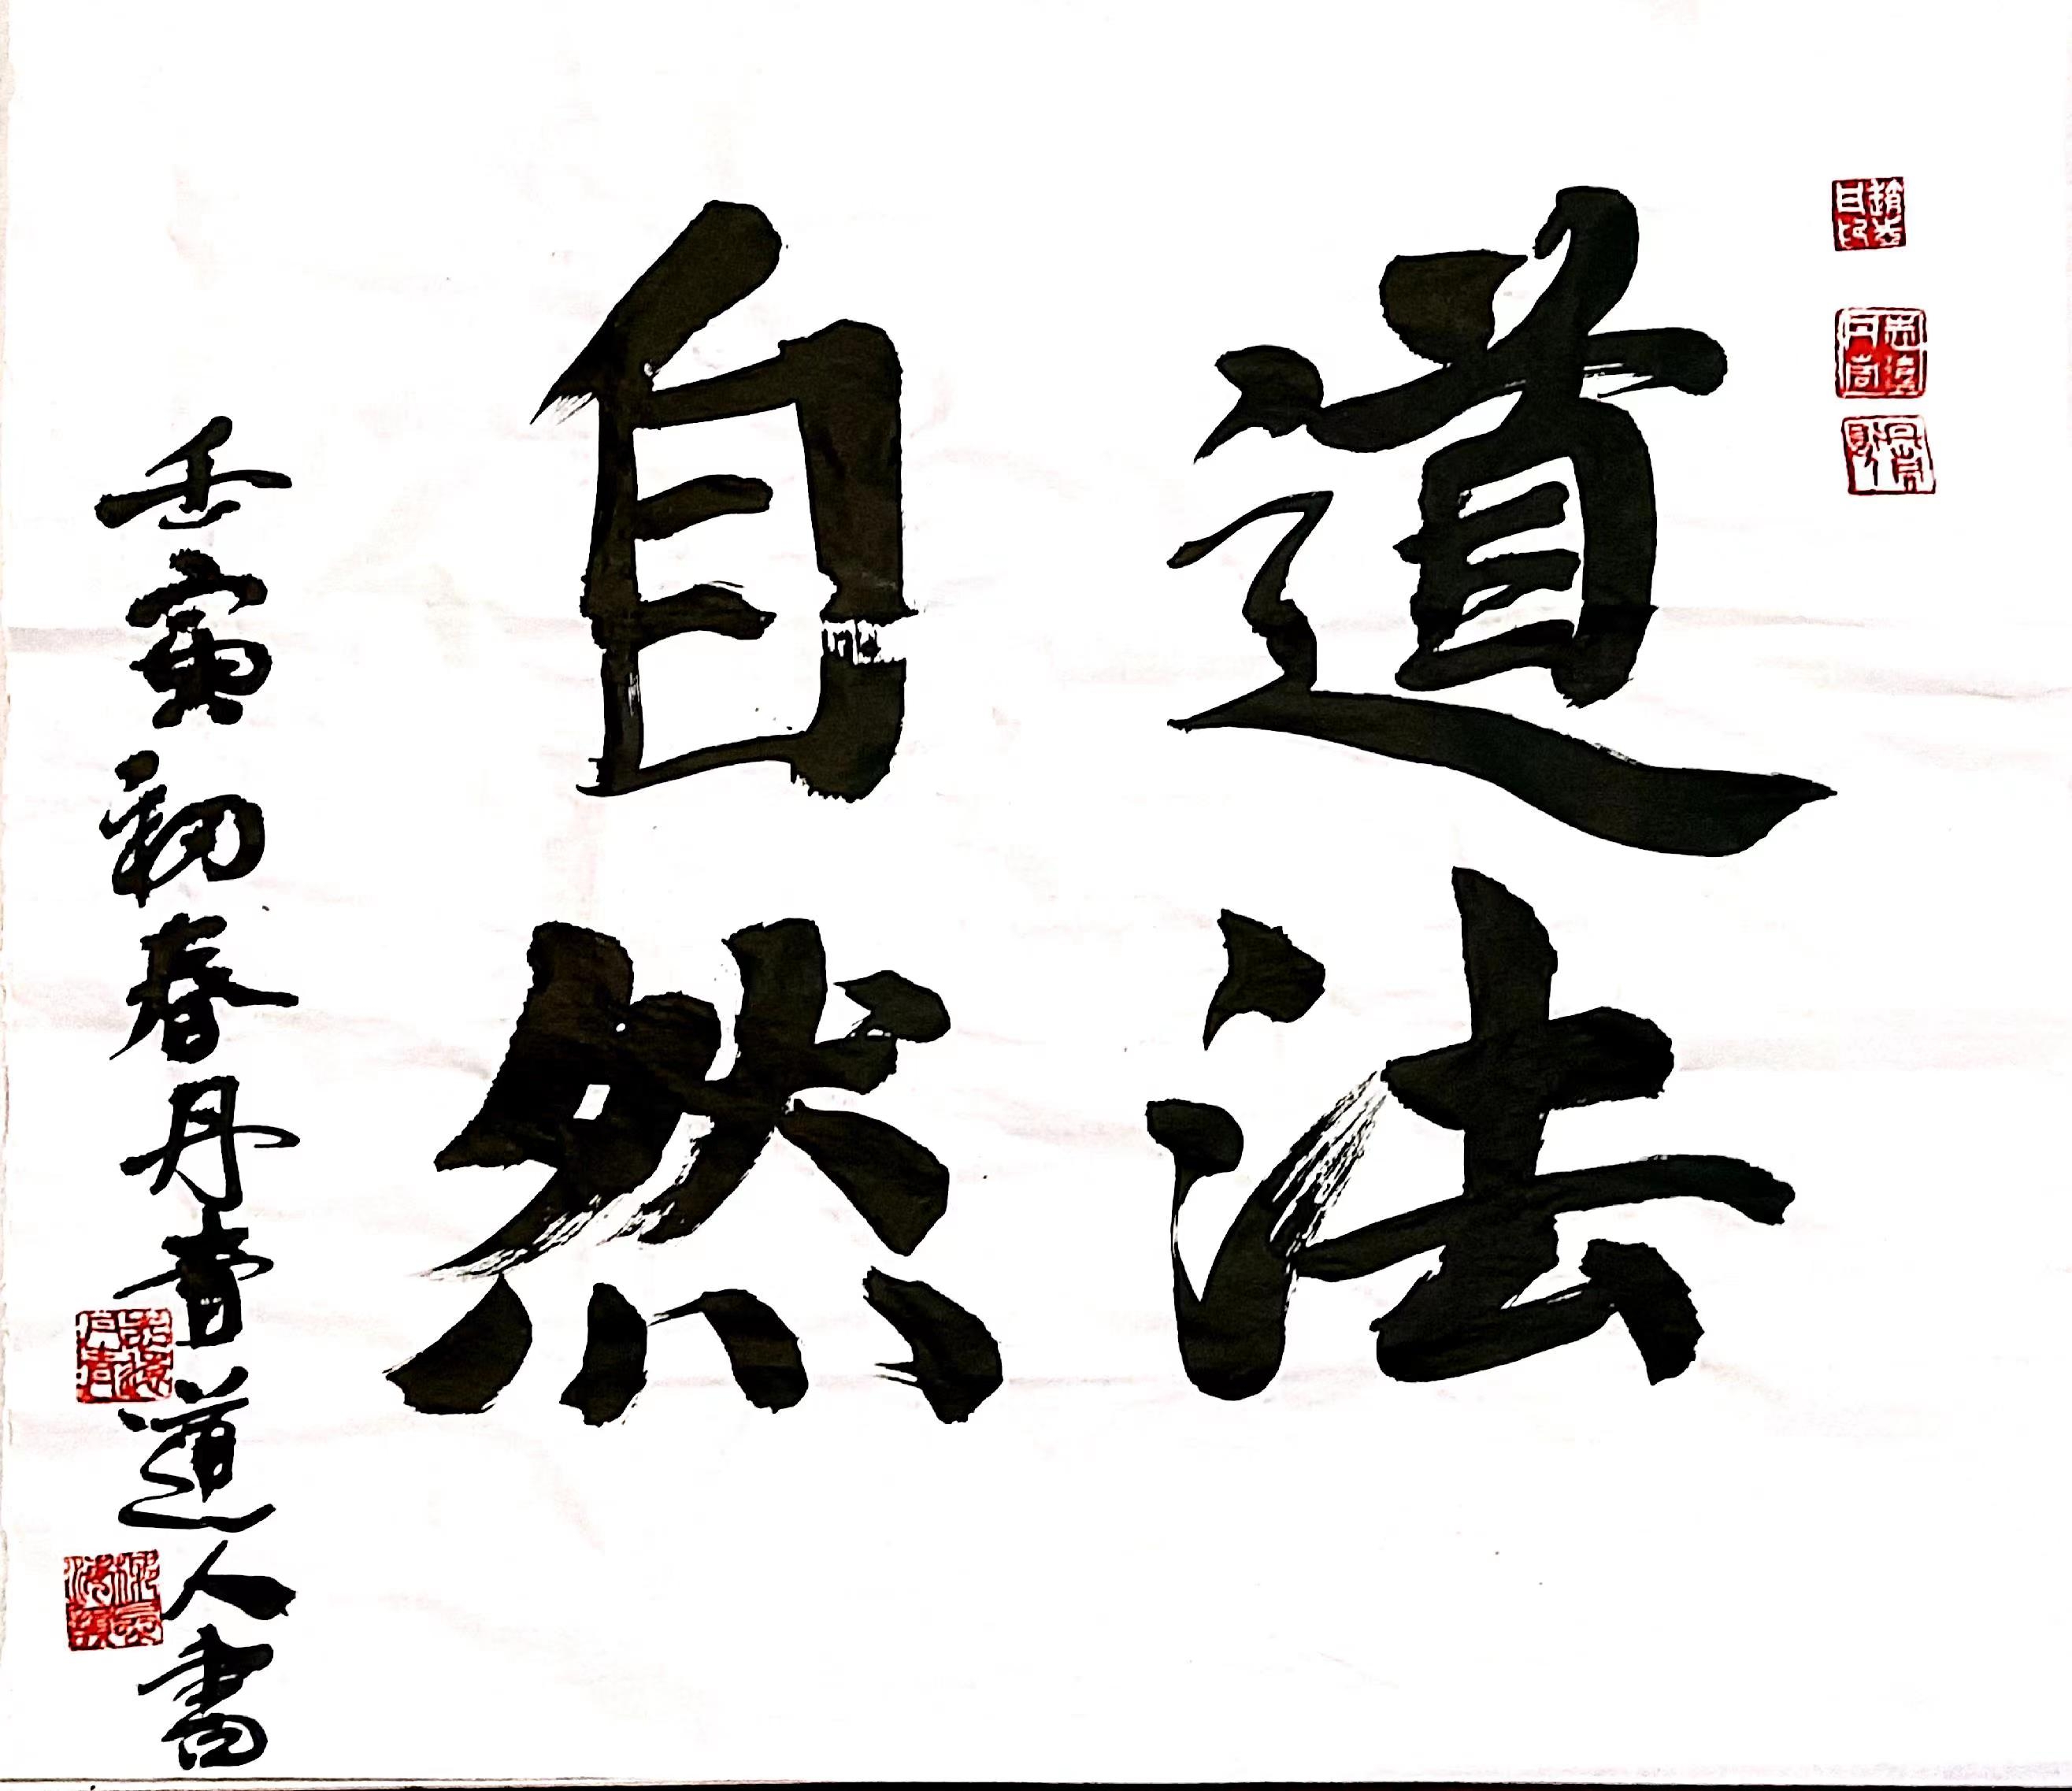 道法
自然
壬寅初春丹青道人書